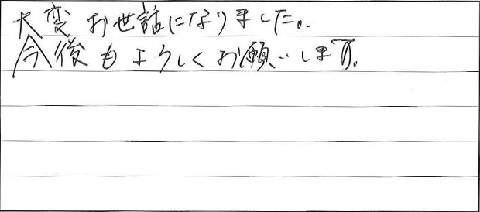 大変お世話になりました。
今後もよろしくお願いします。